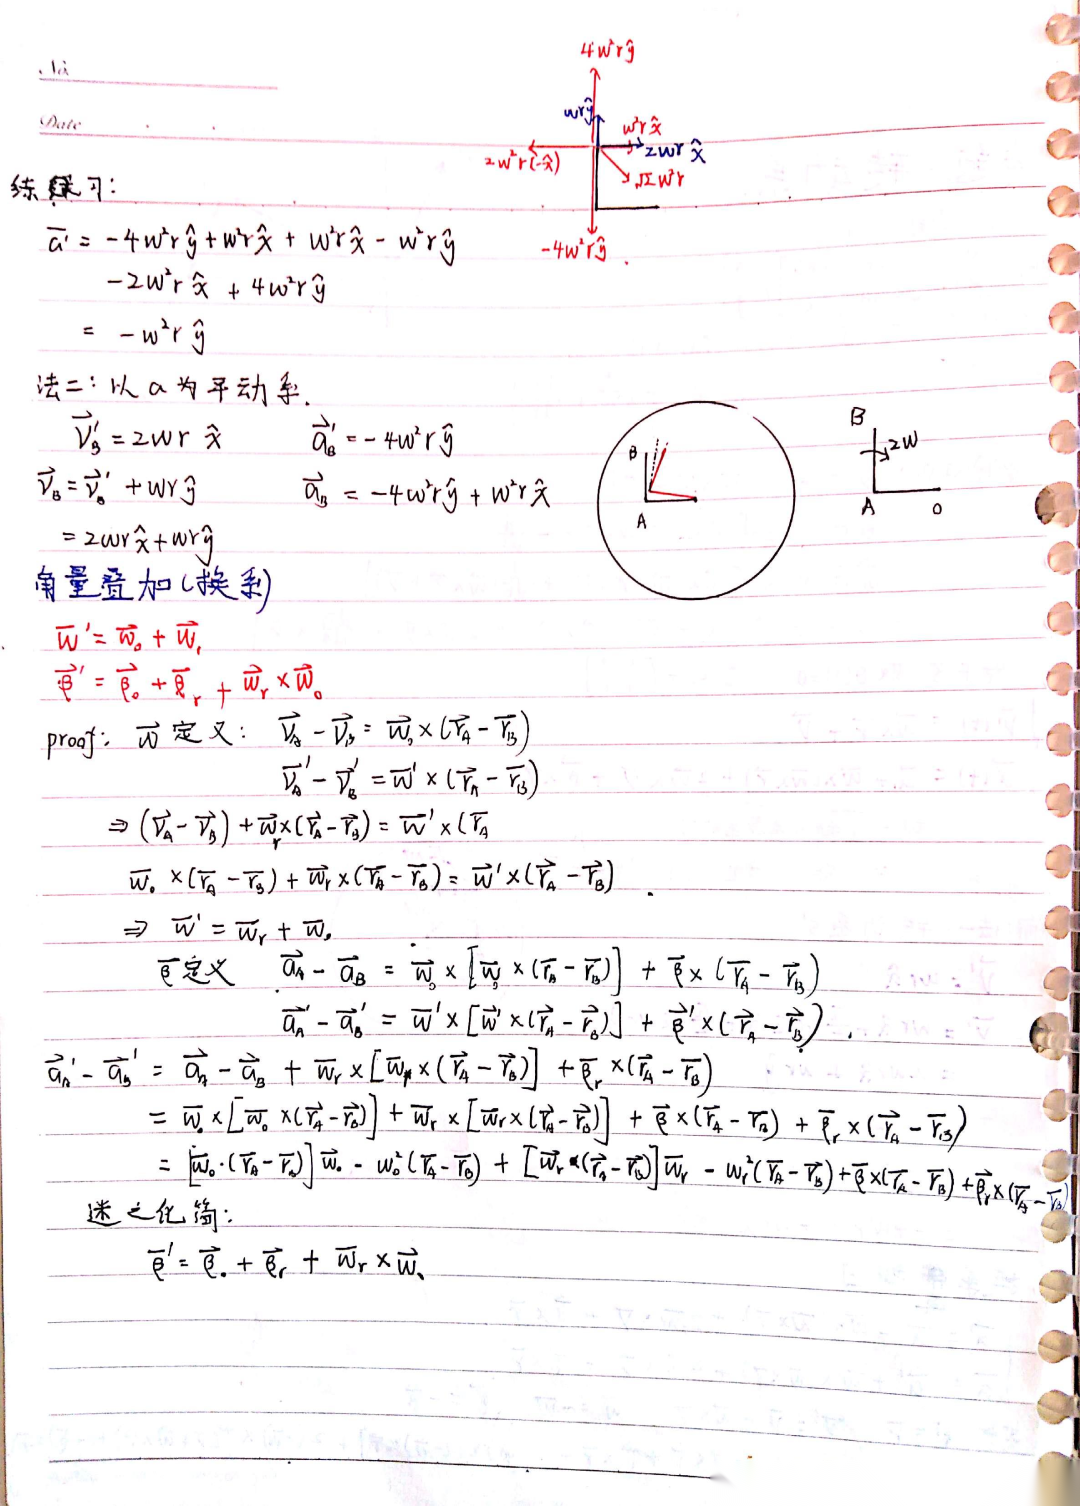 No
Date
4w²rŷ
wrŷ
w²r x̂
2wr x̂
2w²r(-x̂)
√2 w²r
-4w²rŷ
练习:
a⃗' = -4w²rŷ + w²r x̂ + w²r x̂ - w²rŷ
-2w²r x̂ + 4w²rŷ
= -w²r ŷ
法二: 以a为平动系.
V⃗_B' = 2wr x̂   a⃗_B' = -4w²rŷ
V⃗_B = V⃗_B' + wrŷ   a⃗_B = -4w²rŷ + w²r x̂
= 2wr x̂ + wrŷ
B
A
B
2w
A
O
角量叠加(换系)
w⃗' = w⃗₀ + w⃗ᵣ
β⃗' = β⃗₀ + β⃗ᵣ + w⃗ᵣ × w⃗₀
proof: w⃗ 定义: V⃗_A - V⃗_B = w⃗₀ × (r⃗_A - r⃗_B)
V⃗_A' - V⃗_B' = w⃗' × (r⃗_A - r⃗_B)
⇒ (V⃗_A - V⃗_B) + w⃗ᵣ × (r⃗_A - r⃗_B) = w⃗' × (r⃗_A
w⃗₀ × (r⃗_A - r⃗_B) + w⃗ᵣ × (r⃗_A - r⃗_B) = w⃗' × (r⃗_A - r⃗_B)
⇒ w⃗' = w⃗ᵣ + w⃗₀
β⃗定义 a⃗_A - a⃗_B = w⃗₀ × [w⃗₀ × (r⃗_A - r⃗_B)] + β⃗ × (r⃗_A - r⃗_B)
a⃗_A' - a⃗_B' = w⃗' × [w⃗' × (r⃗_A - r⃗_B)] + β⃗' × (r⃗_A - r⃗_B).
a⃗_A' - a⃗_B' = a⃗_A - a⃗_B + w⃗ᵣ × [w⃗ᵣ × (r⃗_A - r⃗_B)] + β⃗ᵣ × (r⃗_A - r⃗_B)
= w⃗₀ × [w⃗₀ × (r⃗_A - r⃗_B)] + w⃗ᵣ × [w⃗ᵣ × (r⃗_A - r⃗_B)] + β⃗ × (r⃗_A - r⃗_B) + β⃗ᵣ × (r⃗_A - r⃗_B)
= [w⃗₀·(r⃗_A - r⃗_B)] w⃗₀ - w₀²(r⃗_A - r⃗_B) + [w⃗ᵣ·(r⃗_A - r⃗_B)] w⃗ᵣ - wᵣ²(r⃗_A - r⃗_B) + β⃗ × (r⃗_A - r⃗_B) + β⃗ᵣ × (r⃗_A - r⃗_B)
迷之化简:
β⃗' = β⃗₀ + β⃗ᵣ + w⃗ᵣ × w⃗₀